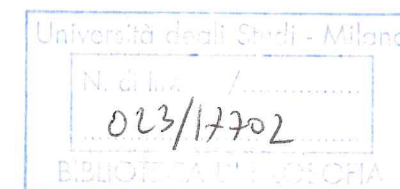 Università degli Studi - Milano
N. di Inv. /
023/17702
BIBLIOTECA DI FILOSOFIA